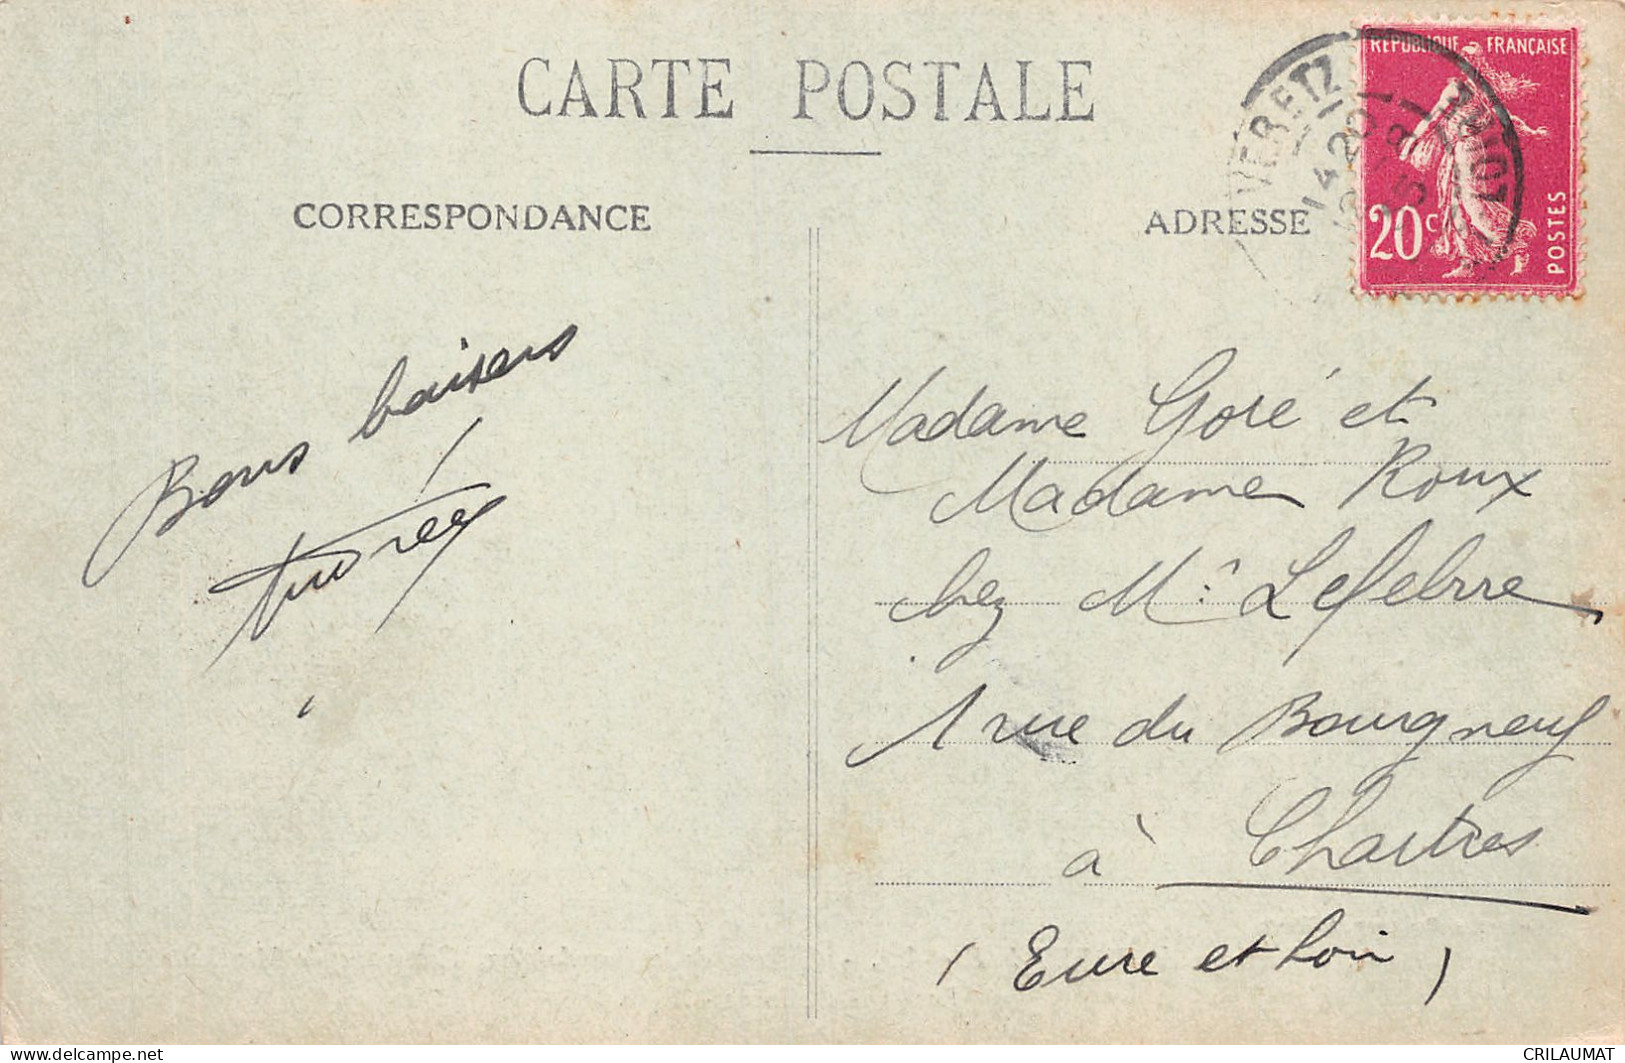 CARTE POSTALE
CORRESPONDANCE
ADRESSE
REPUBLIQUE FRANÇAISE
20c
POSTES
VERETZ
Bons baisers
Andrée
Madame Goré et
Madame Roux
chez Mr Lefebvre
1 rue du Bourgneuf
à Chartres
(Eure et Loir)
delcampe.net
CRILAUMAT